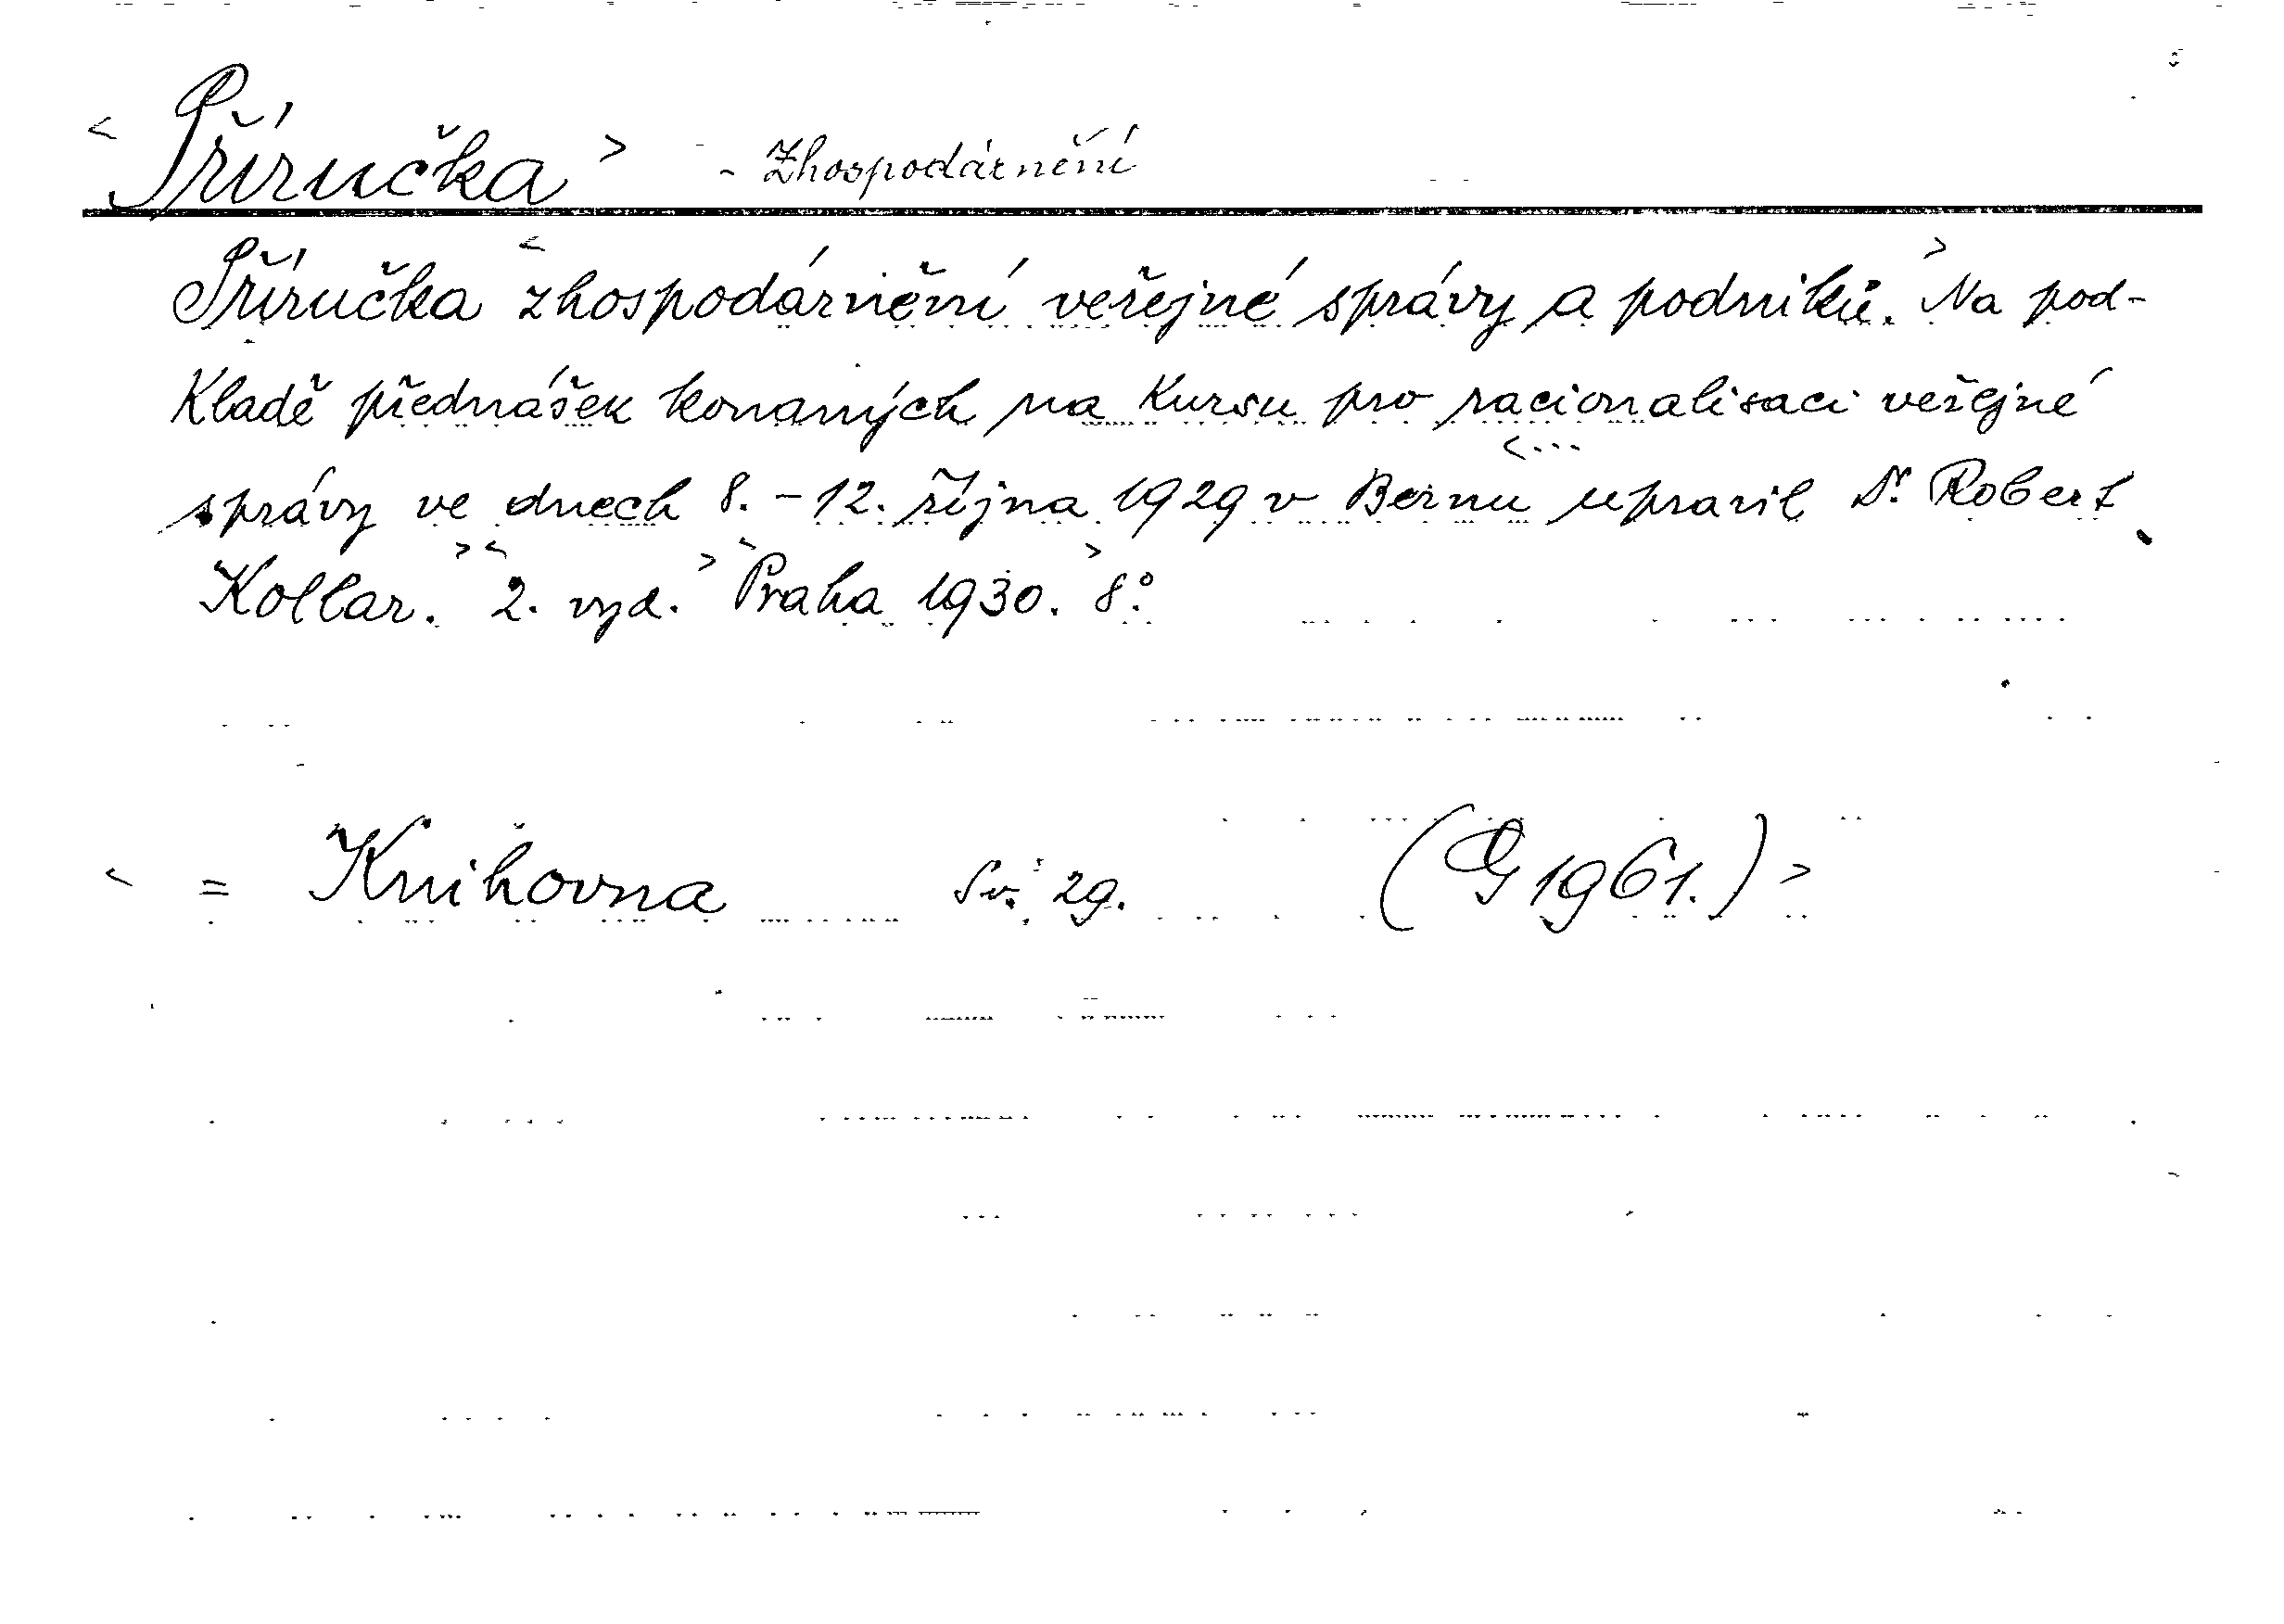 < Příručka > - Zhospodárnění
Příručka < zhospodárnění veřejné správy a podniků. > Na pod-
kladě přednášek konaných na kursu pro racionalisaci veřejné
správy ve dnech 8. - 12. října 1929 v Bernu <... upravil Dr. Robert
Kollar. > < 2. vyd. > < Praha 1930. > 8°.
< = Knihovna Sv. 29. (G 1961.) >